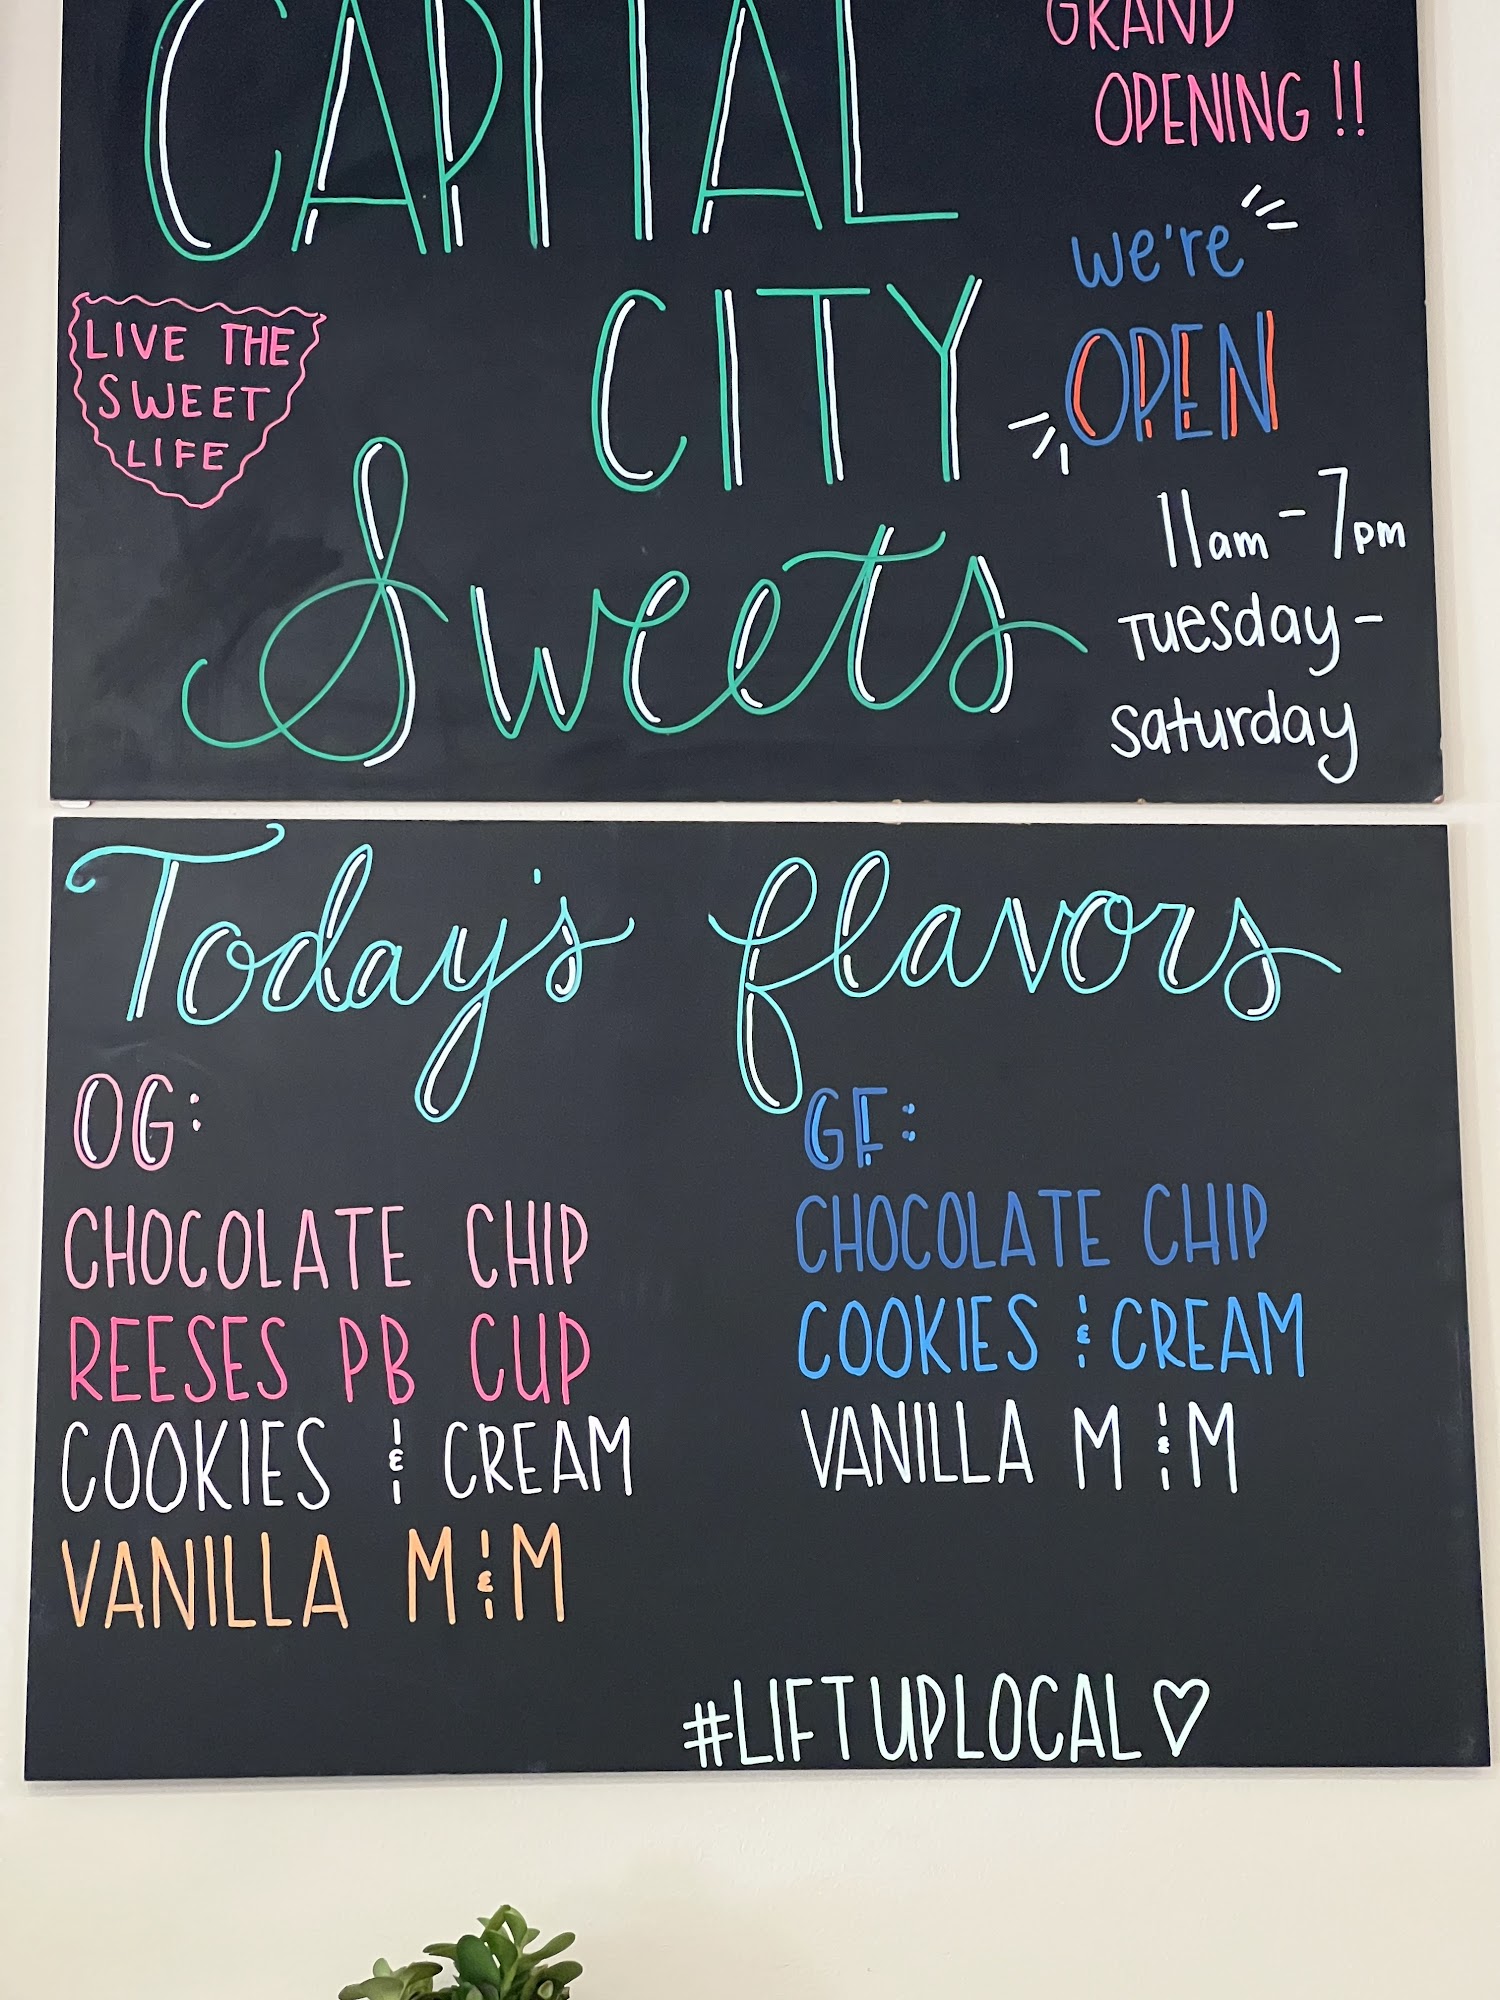 CAPITAL
CITY
Sweets
LIVE THE
SWEET
LIFE
GRAND
OPENING!!
we're
OPEN
11am - 7pm
Tuesday -
Saturday
Today's flavors
OG:
CHOCOLATE CHIP
REESES PB CUP
COOKIES & CREAM
VANILLA M&M
GF:
CHOCOLATE CHIP
COOKIES & CREAM
VANILLA M&M
#LIFTUPLOCAL♡